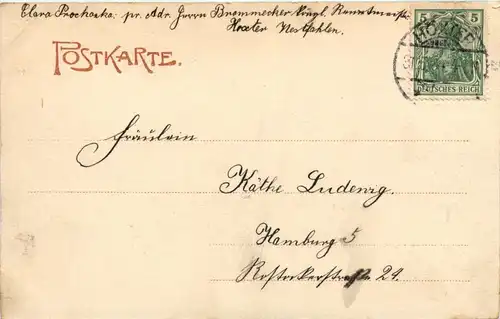 Clara Prochaska. pr. Adr. Herrn Brommecker. Königl. Rentmeister
Hoexter Westfalen.
POSTKARTE.
5 5
DEUTSCHES REICH
Fräulein
Käthe Ludewig.
Hamburg 5
Rostockerstraße 24.